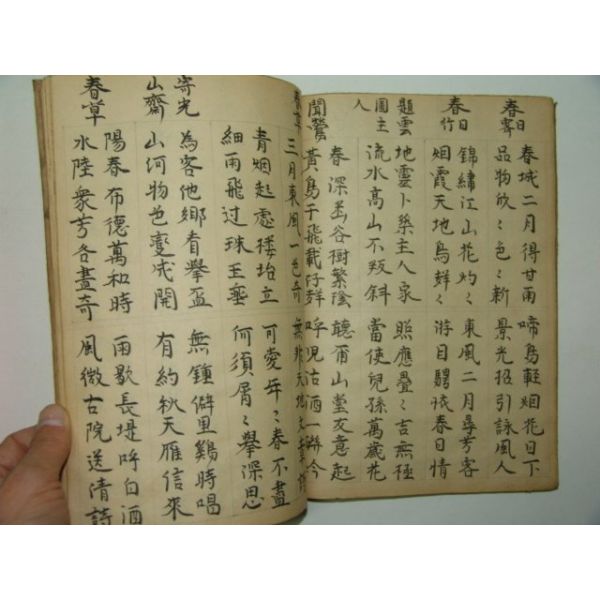 春日霽
春城二月得甘雨 啼鳥輕烟花日下
品物欣〻色〻新 景光招引詠風人
春日行
錦繡江山花灼〻 東風二月尋芳客
烟霞天地鳥鮮〻 游目騁懷春日情
題雲圃主人
地靈卜築主人家 照應疊〻吉無極
流水高山不叛斜 當使兒孫萬歲花
聞鶯
春深幽谷樹繁陰 聽爾山堂友意起
黃鳥于飛載好群 呼兒沽酒一斟今
春草
三月東風一色奇 無非天地文章詩
青烟起處樓坮立 可愛年〻春不盡
細雨飛过珠玉垂 何須屑〻擧深思
寄光山齋
為客他鄉肯擧盃 無鐘僻里鷄時唱
山河物色變成開 有約秋天雁信來
春草
陽春布德萬和時 雨歇長堤呼白酒
水陸衆芳各畫奇 風微古院送清詩